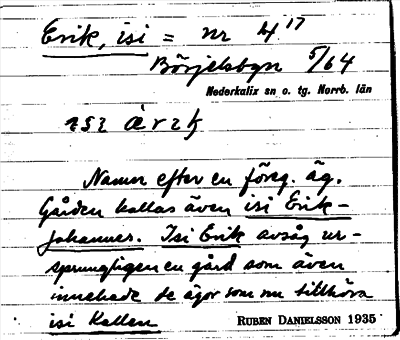 Erik, isi = nr 4¹⁷
Börjelsbyn 5/64
Nederkalix sn o. tg. Norrb. län
Namn efter en föreg. äg.
Gården kallas även isi Erik-
Johannes. Isi Erik avsåg ur-
sprungligen en gård som även
innehade de ägor som nu tillhöra
isi Kallen
RUBEN DANIELSSON 1935